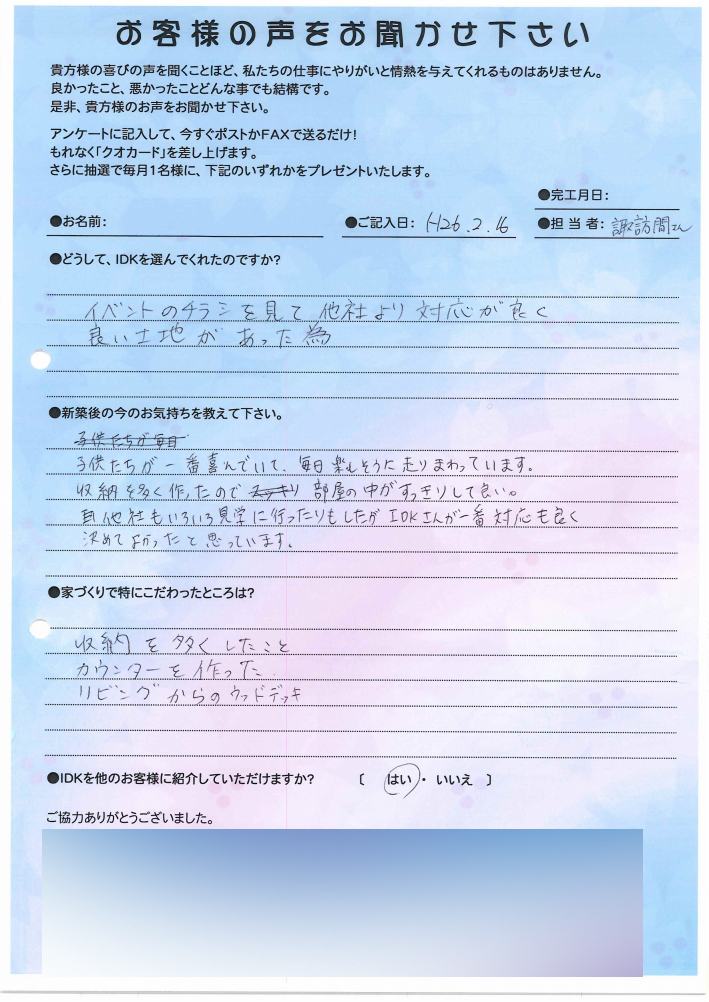 お客様の声をお聞かせ下さい
貴方様の喜びの声を聞くことほど、私たちの仕事にやりがいと情熱を与えてくれるものはありません。
良かったこと、悪かったことどんな事でも結構です。
是非、貴方様のお声をお聞かせ下さい。
アンケートに記入して、今すぐポストかFAXで送るだけ!
もれなく「クオカード」を差し上げます。
さらに抽選で毎月1名様に、下記のいずれかをプレゼントいたします。
●完工月日:
●お名前: ●ご記入日: H26.2.16 ●担当者: 諏訪間さん
●どうして、IDKを選んでくれたのですか?
イベントのチラシを見て他社より対応が良く
良い土地があった為
●新築後の今のお気持ちを教えて下さい。
子供たちが毎日
子供たちが一番喜んでいて、毎日楽しそうに走りまわっています。
収納を多く作ったのでスッキリ部屋の中がすっきりして良い。
他社もいろいろ見学に行ったりもしたがIDKさんが一番対応も良く
決めてよかったと思っています。
●家づくりで特にこだわったところは?
収納を多くしたこと
カウンターを作った
リビングからのウッドデッキ
●IDKを他のお客様に紹介していただけますか? 〔 はい・いいえ 〕
ご協力ありがとうございました。